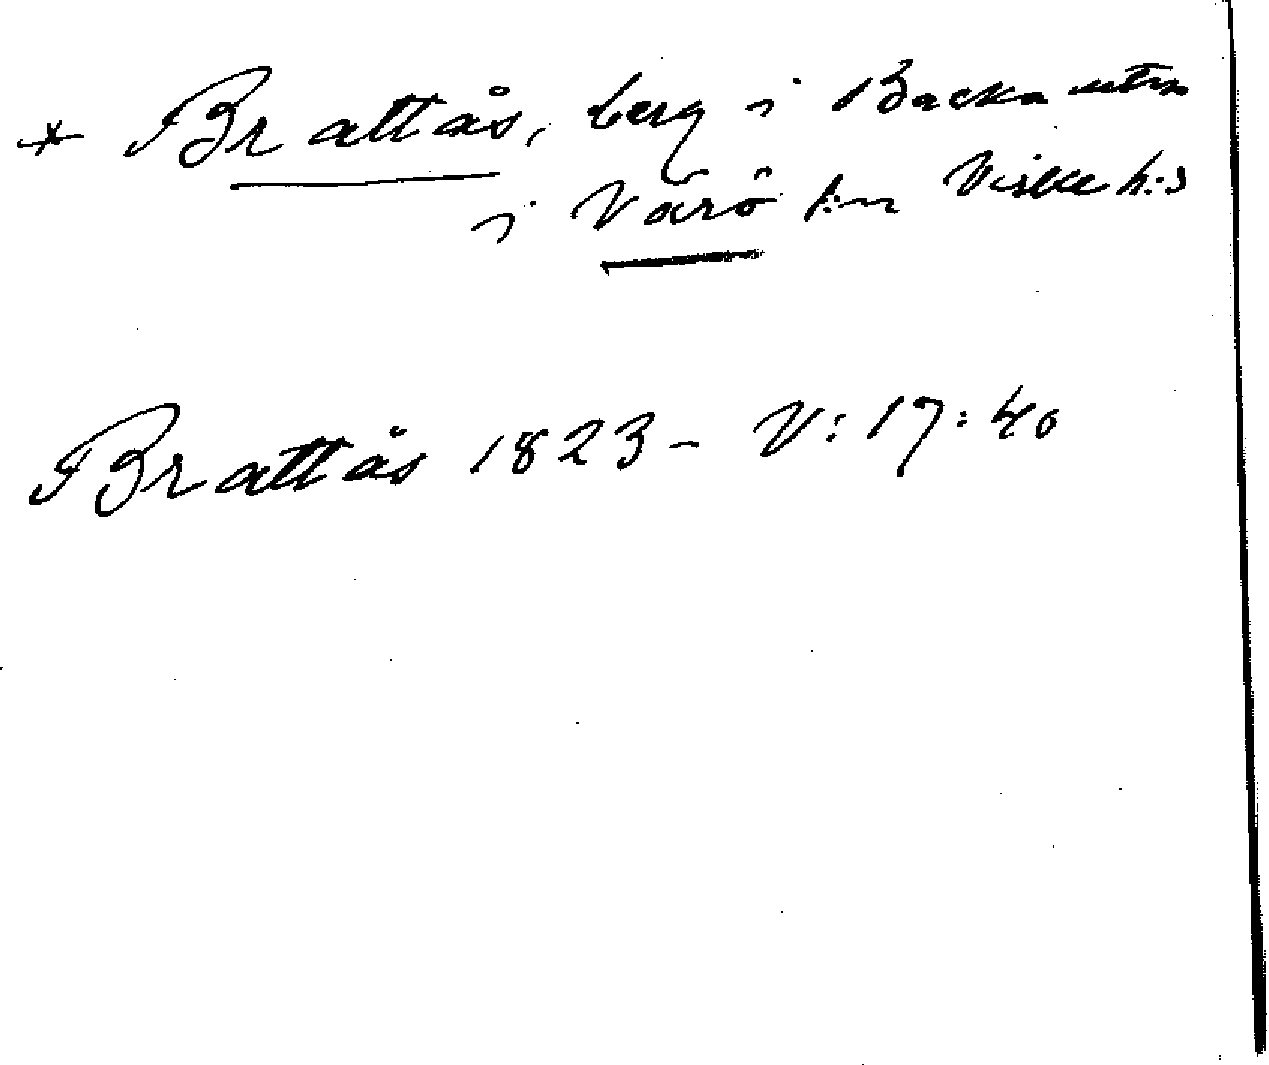 * Brattås, berg i Backa utm
i Värö s:n Viske h:d
Brattås 1823 - V: 17: 40